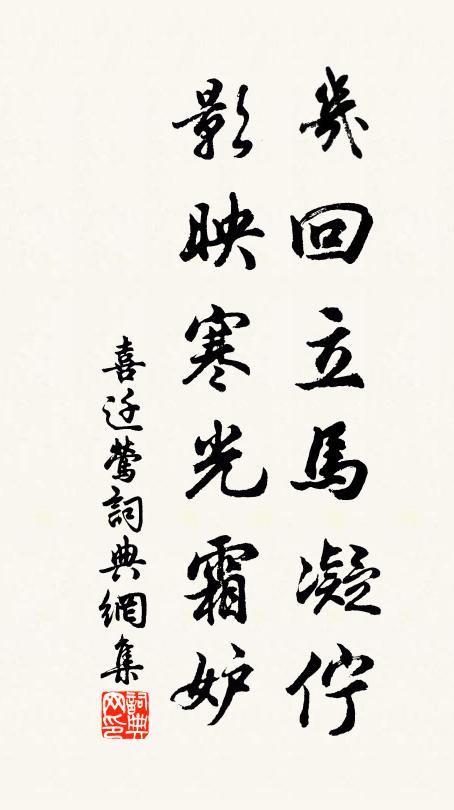 幾回立馬凝佇
影映寒光霜妒
喜迁鶯詞典網集
詞典
网印